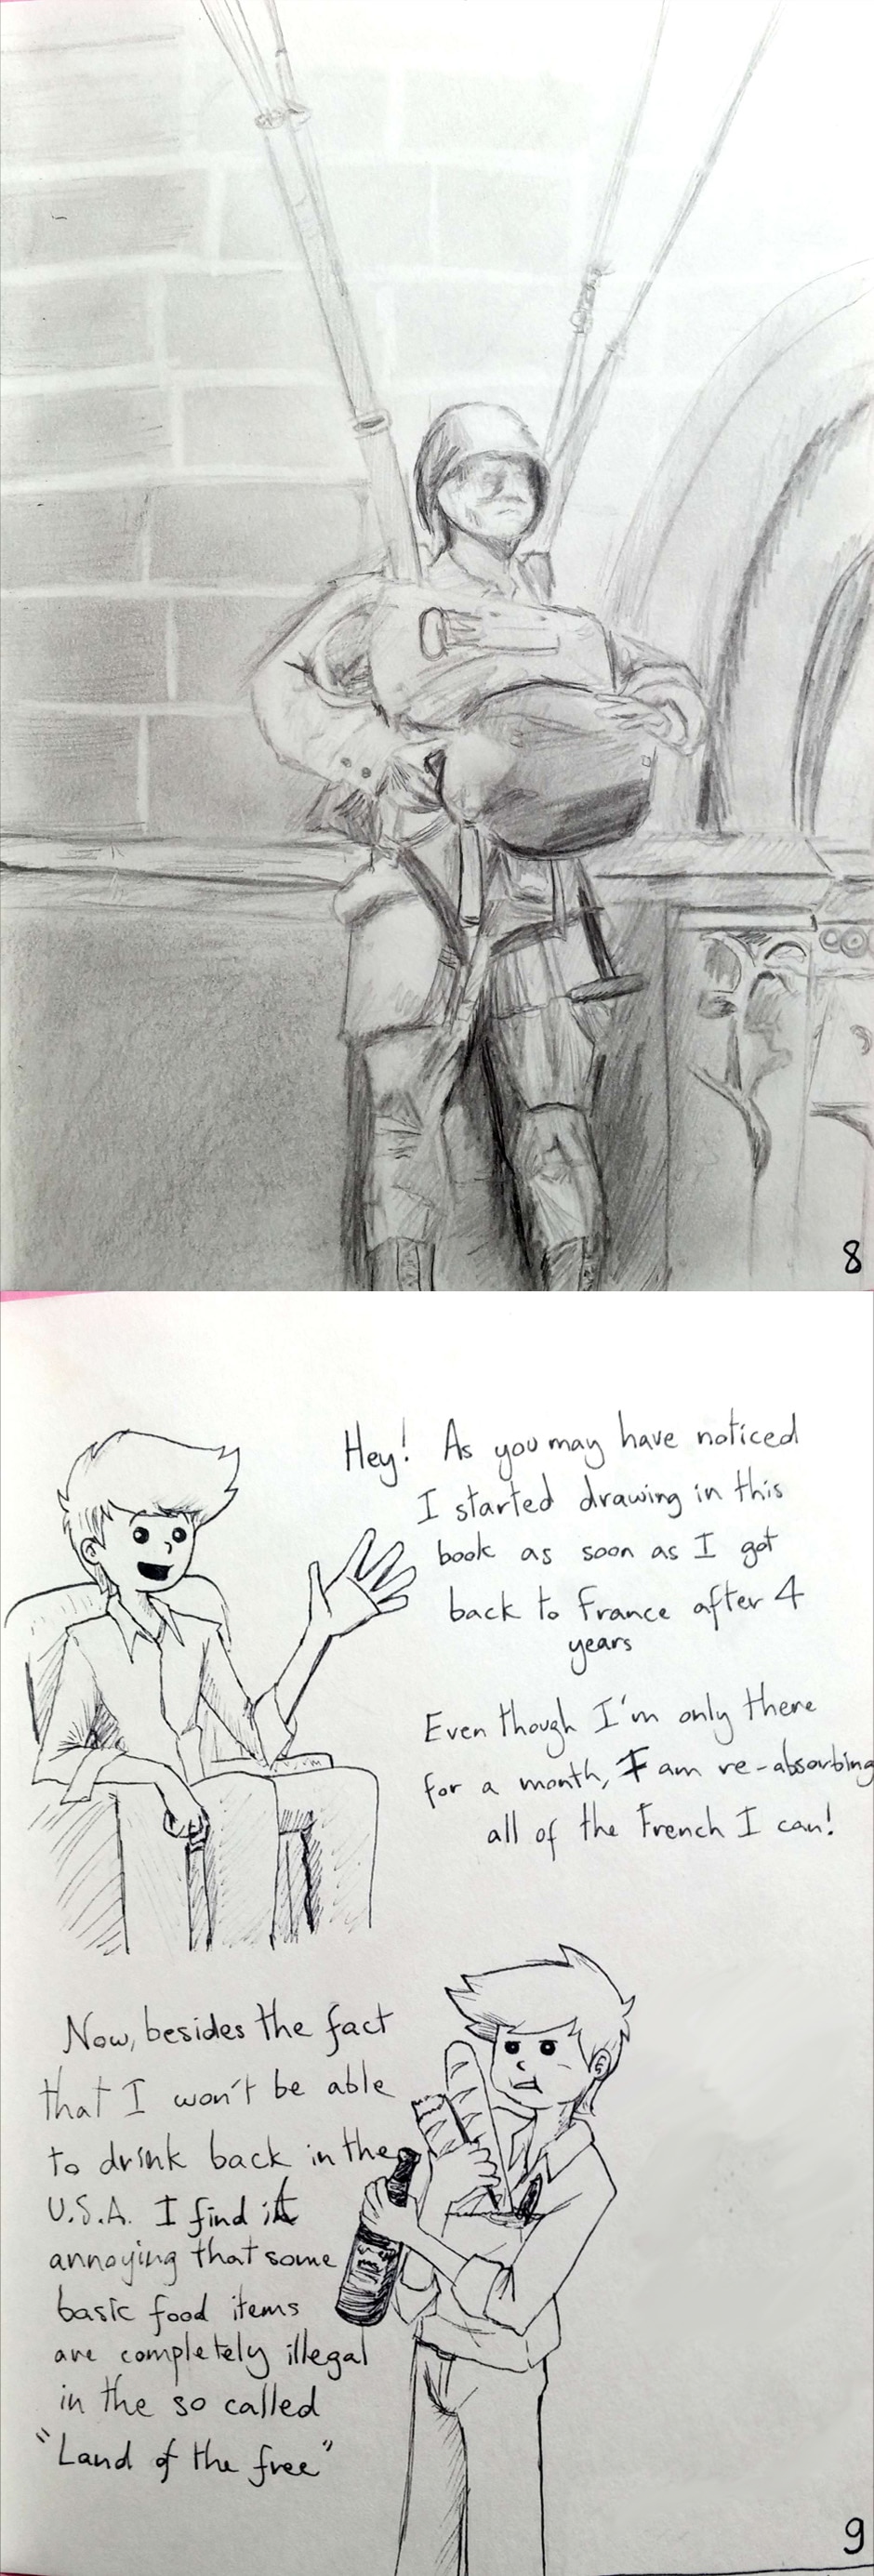 8
Hey! As you may have noticed
I started drawing in this
book as soon as I got
back to France after 4
years
Even though I'm only there
for a month, I am re-absorbing
all of the French I can!
Now, besides the fact
that I won't be able
to drink back in the
U.S.A. I find it
annoying that some
basic food items
are completely illegal
in the so called
"Land of the free"
9